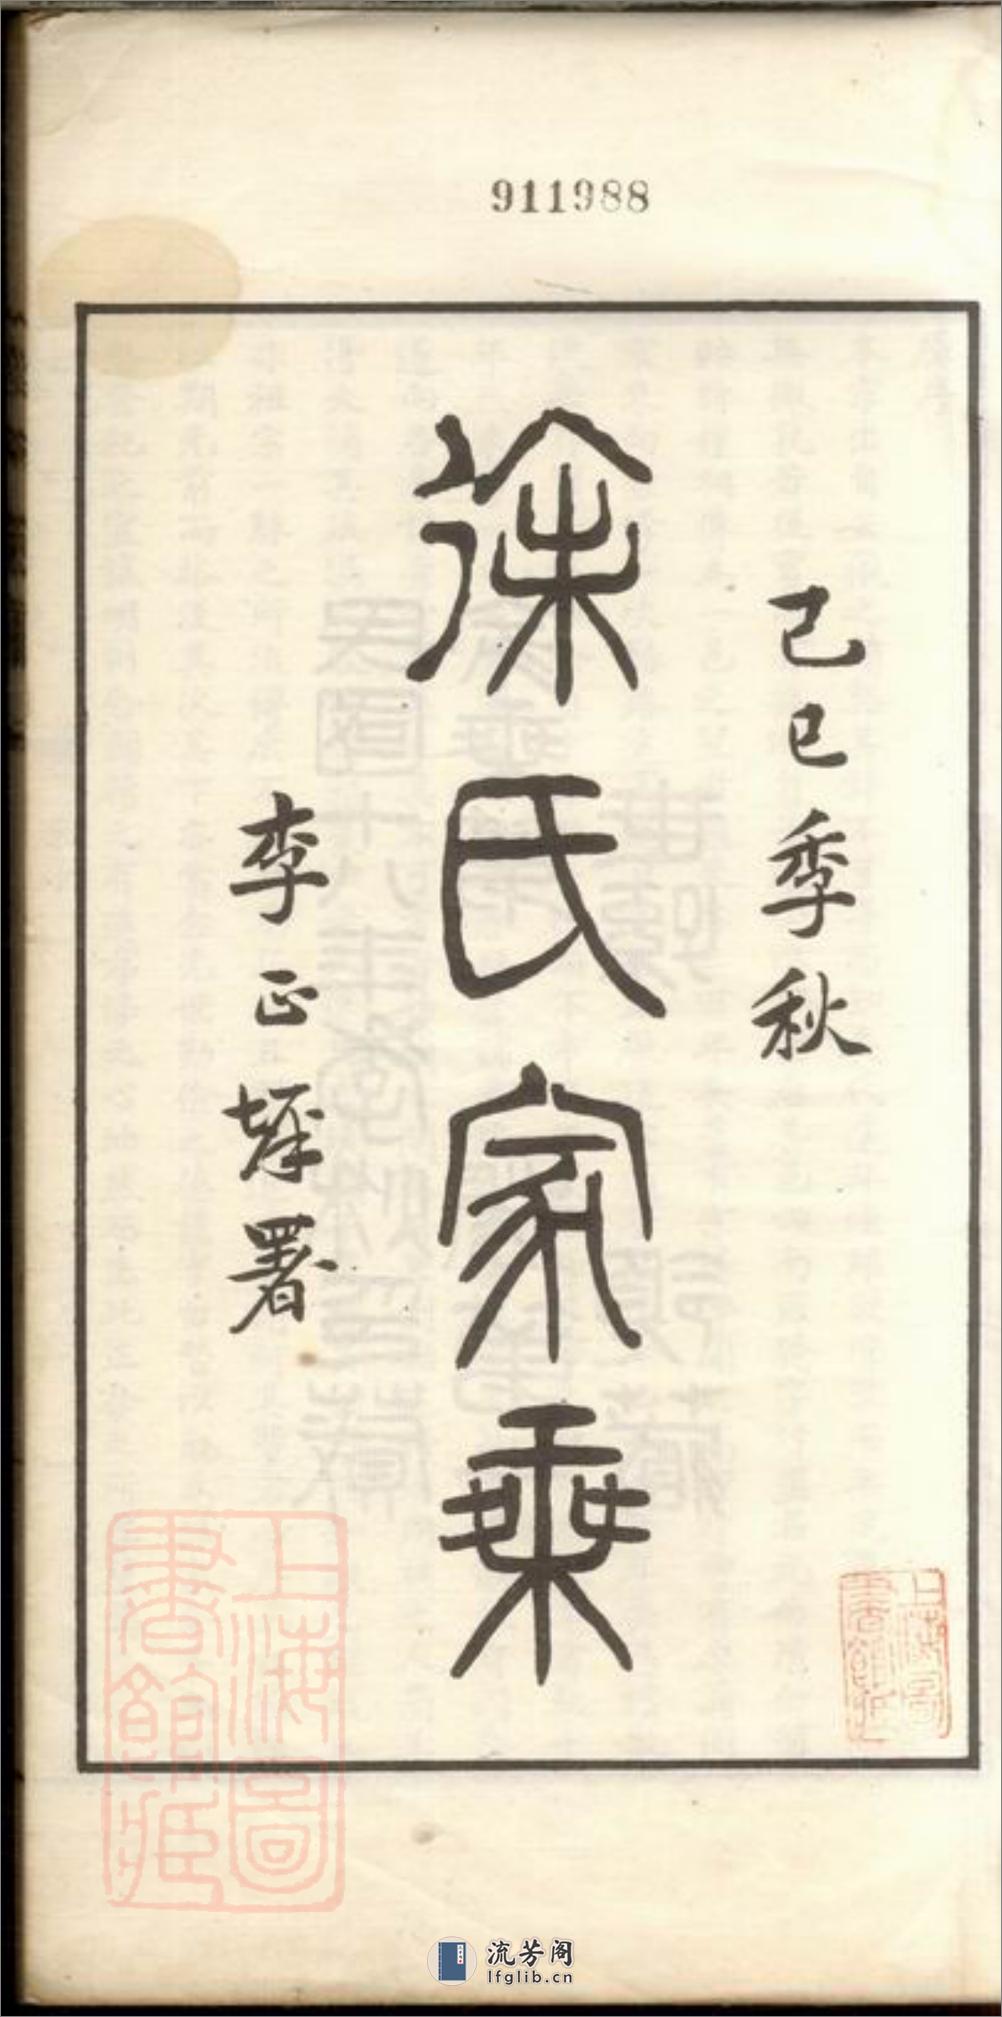 911988
己巳季秋
徐氏家乘
李正 署
上海圖書館藏
上海圖書館藏
流芳阁
lfglib.cn